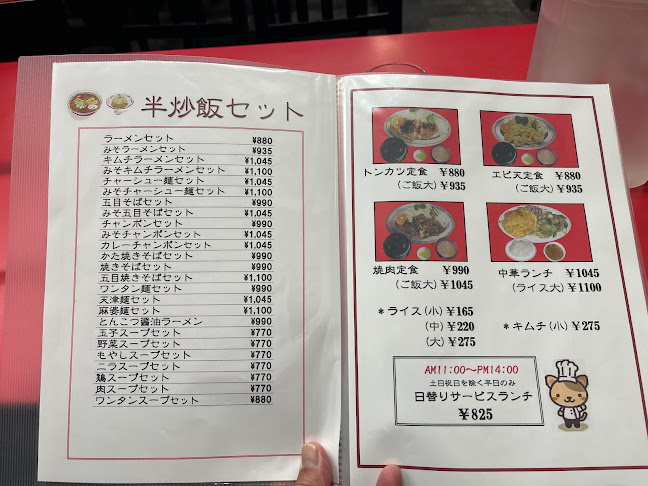 半炒飯セット
ラーメンセット ¥880
みそラーメンセット ¥935
キムチラーメンセット ¥1,045
みそキムチラーメンセット ¥1,100
チャーシュー麺セット ¥1,045
みそチャーシュー麺セット ¥1,100
五目そばセット ¥990
みそ五目そばセット ¥1,045
チャンポンセット ¥990
みそチャンポンセット ¥1,045
カレーチャンポンセット ¥1,045
かた焼きそばセット ¥990
焼きそばセット ¥990
五目焼きそばセット ¥1,100
ワンタン麺セット ¥990
天津麺セット ¥1,045
麻婆麺セット ¥1,100
とんこつ醤油ラーメン ¥990
玉子スープセット ¥770
野菜スープセット ¥770
もやしスープセット ¥770
ニラスープセット ¥770
鶏スープセット ¥770
肉スープセット ¥770
ワンタンスープセット ¥880
トンカツ定食 ¥880
(ご飯大) ¥935
エビ天定食 ¥880
(ご飯大) ¥935
焼肉定食 ¥990
(ご飯大) ¥1045
中華ランチ ¥1045
(ライス大) ¥1100
*ライス(小) ¥165
(中) ¥220
(大) ¥275
*キムチ(小) ¥275
AM11:00～PM14:00
土日祝日を除く平日のみ
日替りサービスランチ
¥825